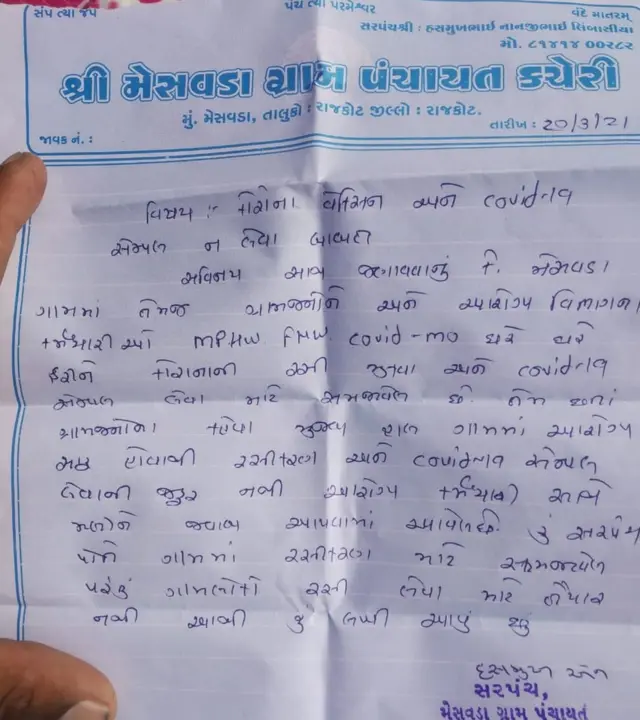 સંપ ત્યાં જંપ
પંચ ત્યાં પરમેશ્વર
વંદે માતરમ્
સરપંચશ્રી : હસમુખભાઈ નાનજીભાઈ સિંબાસીયા
મો. ૮૧૪૧૪ ૦૦૨૮૨
શ્રી મેસવડા ગ્રામ પંચાયત કચેરી
મું. મેસવડા, તાલુકો : રાજકોટ જીલ્લો : રાજકોટ.
જાવક નં. :
તારીખ : 20/3/21
વિષય :- કોરોના વેક્સિન અને covid-19
સેમ્પલ ન લેવા બાબત
સવિનય સાથ જણાવવાનું કે. મેસવડા
ગામમાં તેમજ ગ્રામજનોને અને આરોગ્ય વિભાગના
કર્મચારી ઓ MPHW FHW covid-mo ઘરે ઘરે
ફરીને કોરોનાની રસી મુકવા અને covid-19
સેમ્પલ લેવા માટે સમજાવેલ છે. તેમ છતાં
ગ્રામજનોના કહેવા મુજબ હાલ ગામમાં આરોગ્ય
હોવાથી રસીકરણ અને covid-19 સેમ્પલ
લેવાની જરૂર નથી આરોગ્ય કર્મચારી
જવાબ આપવામાં આવેલ છે. હું સરપંચ
પોતે ગામમાં રસીકરણ માટે સમજાવેલ
પરંતુ ગામલોકો રસી લેવા માટે તૈયાર
નથી આથી હું લખી આપું છું
હસમુખ એન
સરપંચ,
મેસવડા ગ્રામ પંચાયત